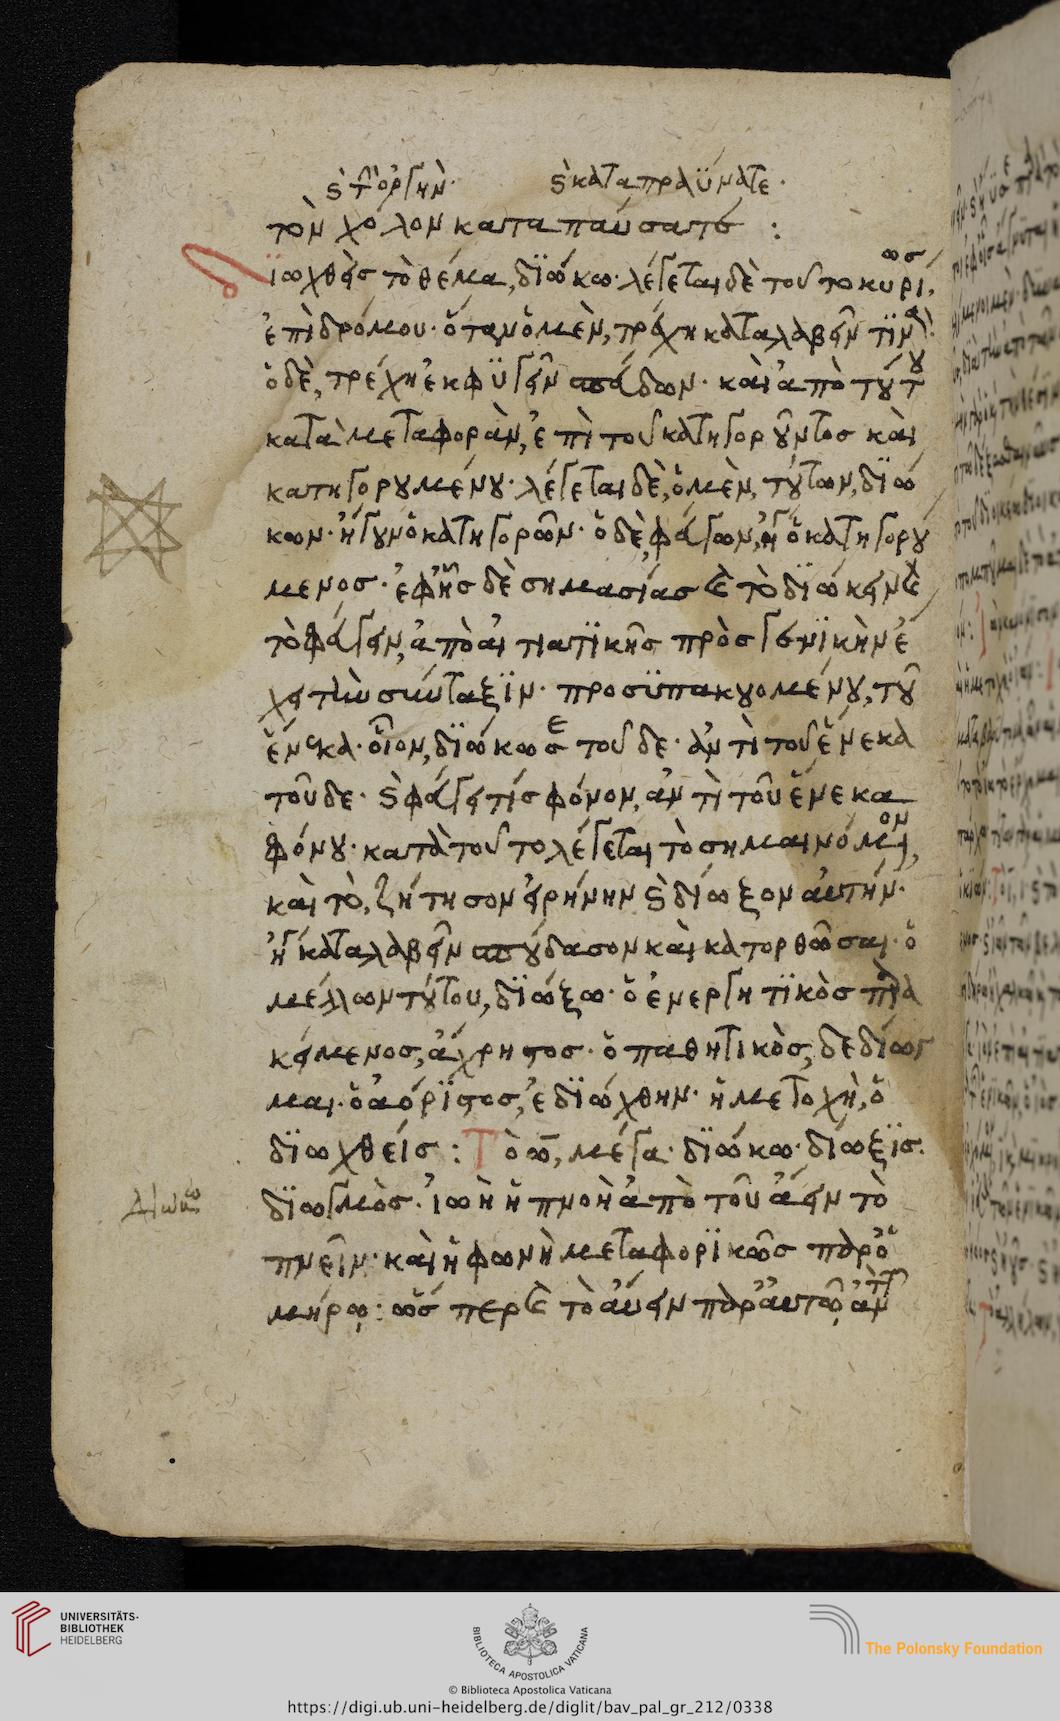 ϗ τὴν ὀργὴν· ϗ καταπραΰνατε·
τὸν χόλον καταπαύσατε :
Διωχθεὶς τὸ θέμα, δϊώκω· λέγεται δὲ τοῦτο κυρίως
ἐπὶ δρόμου· ὅταν ὁ μὲν, τρέχη καταλαβεῖν τϊνὰ·
ὁ δὲ, τρέχη ἐκφϋγεῖν σπεύδων· καὶ ἀπὸ τούτου
κατὰ μεταφορὰν, ἐπὶ τοῦ κατηγοροῦντος καὶ
κατηγορουμένου· λέγεται δὲ, ὁ μὲν, τούτων, δϊώ
κων· ἤγουν ὁ κατηγορῶν· ὁ δὲ, φεύγων, ἢ ὁ κατηγορού
μενος· ἐφ' ἧς δὲ σημασίας καὶ τὸ δϊώκειν καὶ
τὸ φεύγειν, ἀπὸ αἰτιατϊκῆς πρὸς γενϊκὴν ἔ
χει τὴν σύνταξϊν· προσϋπακουομένου, τοῦ
ἕνεκα· οἷον, δϊώκω σε τοῦδε· ἀντὶ τοῦ ἕνεκα
τοῦδε· ϗ φεύγει τίς φόνον, ἀντὶ τοῦ ἕνεκα
φόνου· κατὰ τοῦτο λέγεται τὸ σημαινόμενον,
καὶ τὸ, ζήτησον εἰρήνην ϗ δίωξον αὐτήν·
ἢ καταλαβεῖν σπούδασον καὶ κατορθῶσαι· ὁ
μέλλων τούτου, δϊώξω· ὁ ἐνεργητϊκὸς παρα
κείμενος, ἄχρηστος· ὁ παθητικὸς, δεδίωγ
μαι· ὁ ἀόρϊστος, ἐδϊώχθην· ἡ μετοχὴ, ὁ
δϊωχθείς : Τὸ ω, μέγα· δϊώκω· δίωξϊς·
δϊωγμὸς· ἰωὴ ἡ πνοὴ ἀπὸ τοῦ ἄειν τὸ
πνεῖν· καὶ ἡ φωνὴ μεταφορϊκῶς παρ' ὁ
μήρῳ : ὥσπερ καὶ τὸ αὔειν παρ' αὐτῷ ἀντὶ τοῦ
Διώκω
UNIVERSITÄTS-
BIBLIOTHEK
HEIDELBERG
BIBLIOTECA APOSTOLICA VATICANA
The Polonsky Foundation
© Biblioteca Apostolica Vaticana
https://digi.ub.uni-heidelberg.de/diglit/bav_pal_gr_212/0338